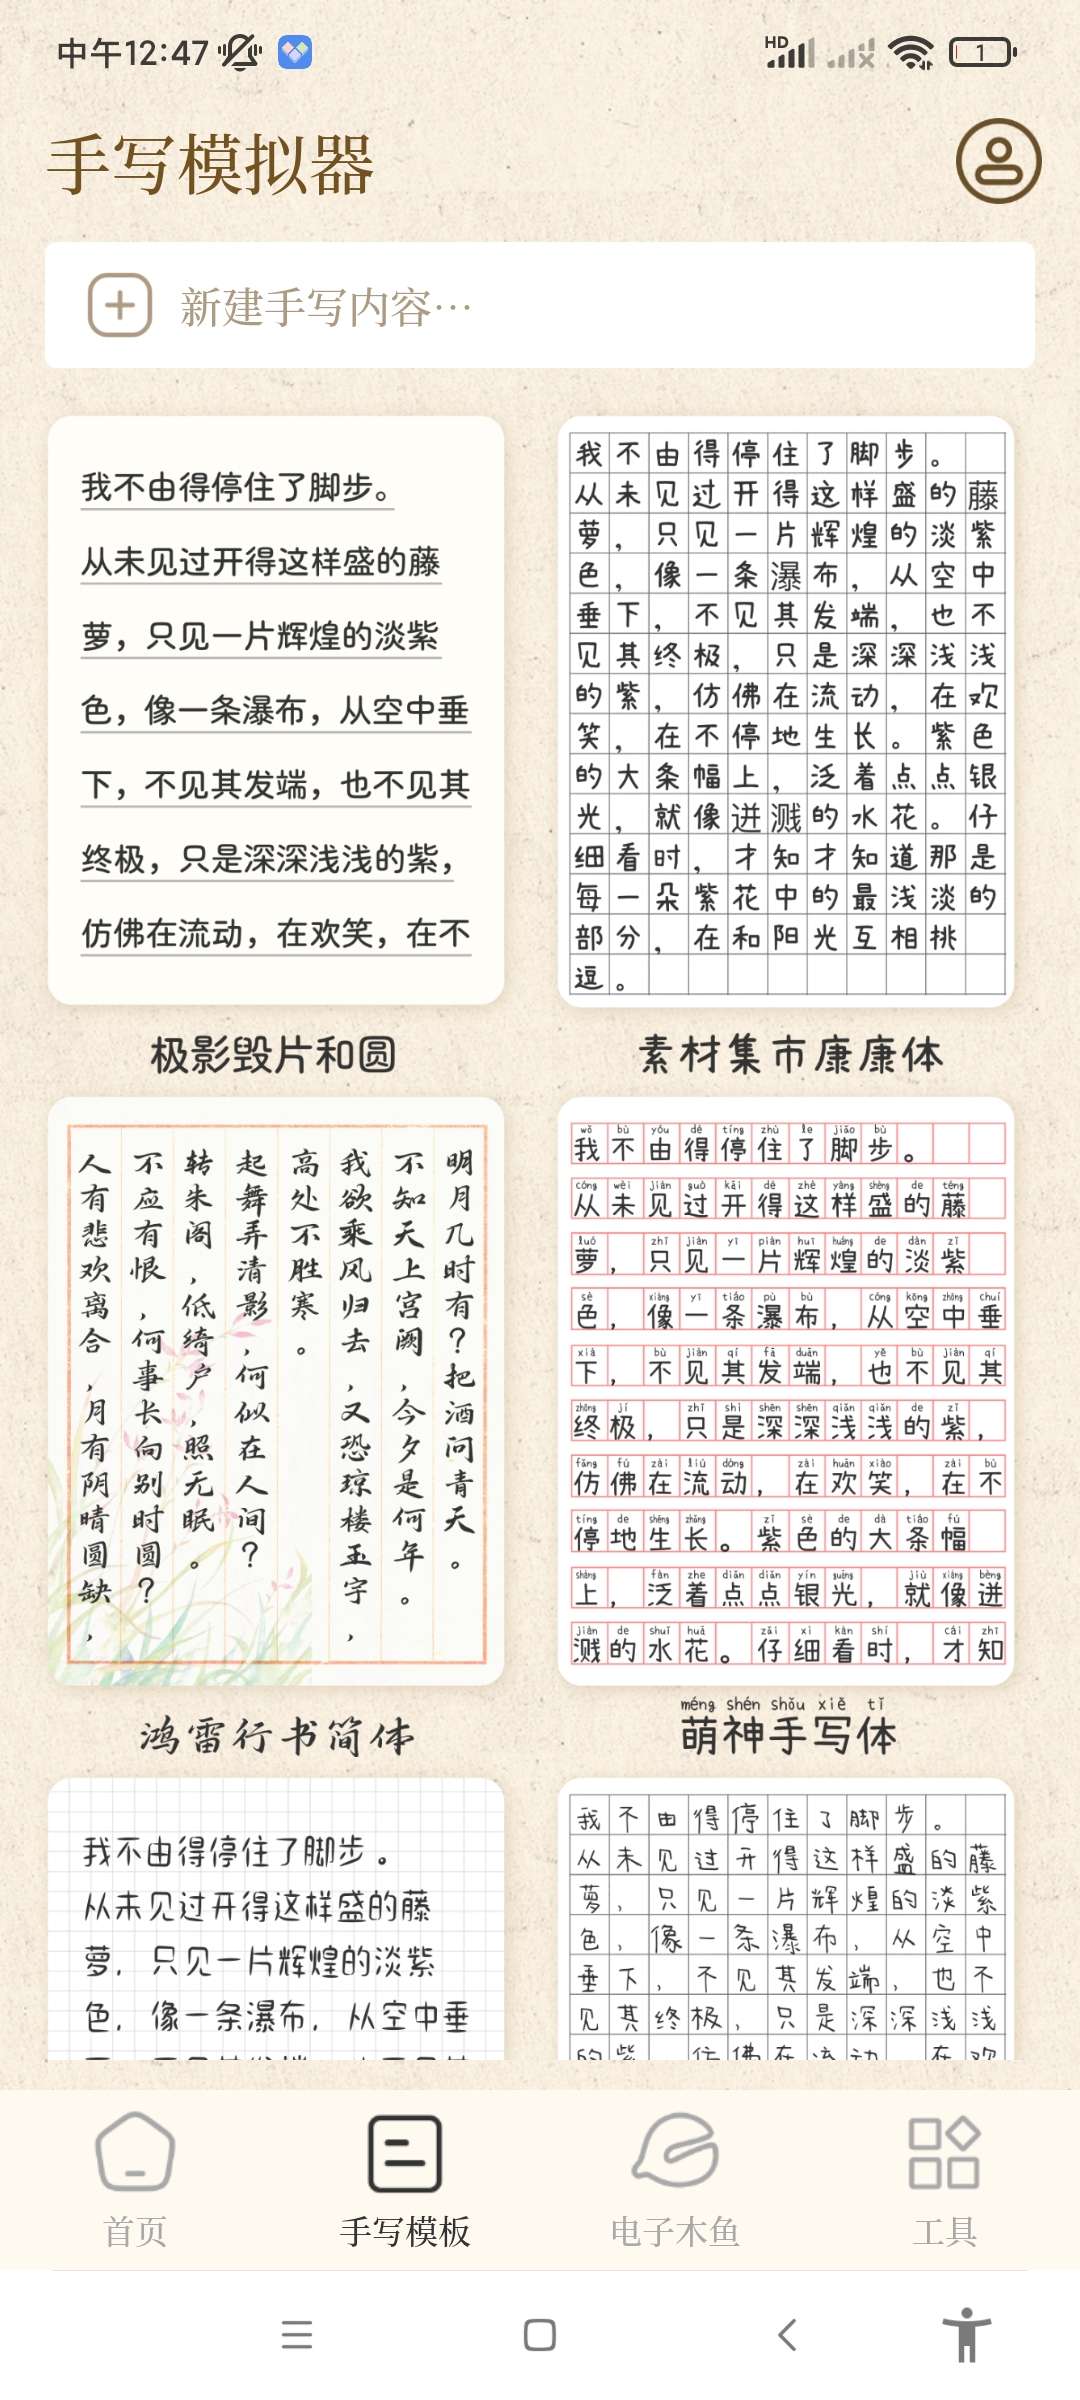 中午12:47
HD
1
手写模拟器
新建手写内容…
我不由得停住了脚步。
从未见过开得这样盛的藤
萝，只见一片辉煌的淡紫
色，像一条瀑布，从空中垂
下，不见其发端，也不见其
终极，只是深深浅浅的紫，
仿佛在流动，在欢笑，在不
极影毁片和圆
我不由得停住了脚步。
从未见过开得这样盛的藤
萝，只见一片辉煌的淡紫
色，像一条瀑布，从空中
垂下，不见其发端，也不
见其终极，只是深深浅浅
的紫，仿佛在流动，在欢
笑，在不停地生长。紫色
的大条幅上，泛着点点银
光，就像迸溅的水花。仔
细看时，才知才知道那是
每一朵紫花中的最浅淡的
部分，在和阳光互相挑
逗。
素材集市康康体
明月几时有？把酒问青天。
不知天上宫阙，今夕是何年。
我欲乘风归去，又恐琼楼玉宇，
高处不胜寒。
起舞弄清影，何似在人间？
转朱阁，低绮户，照无眠。
不应有恨，何事长向别时圆？
人有悲欢离合，月有阴晴圆缺，
鸿雷行书简体
wǒ bù yóu dé tíng zhù le jiǎo bù
我不由得停住了脚步。
cóng wèi jiàn guò kāi dé zhè yàng shèng de téng
从未见过开得这样盛的藤
luó zhǐ jiàn yī piàn huī huáng de dàn zǐ
萝，只见一片辉煌的淡紫
sè xiàng yī tiáo pù bù cóng kōng zhōng chuí
色，像一条瀑布，从空中垂
xià bù jiàn qí fā duān yě bù jiàn qí
下，不见其发端，也不见其
zhōng jí zhǐ shì shēn shēn qiǎn qiǎn de zǐ
终极，只是深深浅浅的紫，
fǎng fú zài liú dòng zài huān xiào zài bù
仿佛在流动，在欢笑，在不
tíng de shēng zhǎng zǐ sè de dà tiáo fú
停地生长。紫色的大条幅
shàng fàn zhe diǎn diǎn yín guāng jiù xiàng bèng
上，泛着点点银光，就像迸
jiàn de shuǐ huā zǎi xì kàn shí cái zhī
溅的水花。仔细看时，才知
méng shén shǒu xiě tǐ
萌神手写体
我不由得停住了脚步。
从未见过开得这样盛的藤
萝，只见一片辉煌的淡紫
色，像一条瀑布，从空中垂
我不由得停住了脚步。
从未见过开得这样盛的藤
萝，只见一片辉煌的淡紫
色，像一条瀑布，从空中
垂下，不见其发端，也不
见其终极，只是深深浅浅
首页
手写模板
电子木鱼
工具